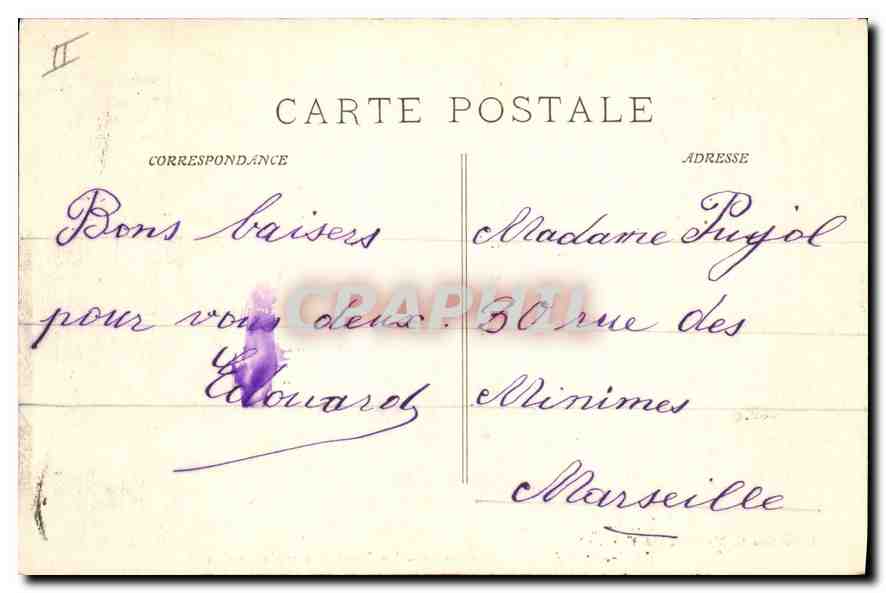 II
CARTE POSTALE
CORRESPONDANCE
ADRESSE
Bons baisers
pour vous deux.
Edouard
Madame Pujol
30 rue des
Minimes
Marseille
CPAPHIL